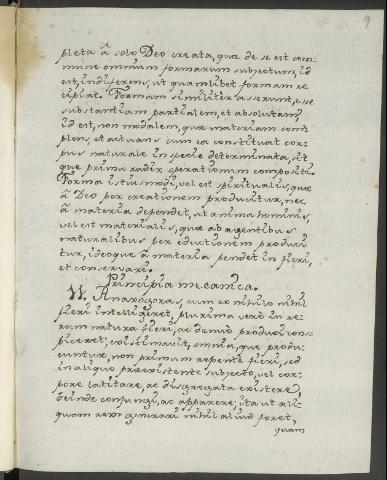 9
pleta â solo Deo creata, quæ de se est com-
mune omnium formarum subjectum, id
est, indiferens, ut quamlibet formam re
cipiat. Formam similiter aserunt, esse
substantiam partialem, et absolutam,
id est, non modalem, quæ materiam com
plens, et actuans cum ea constituat cor-
pus naturale in specie determinata, sit
que prima radix operationum compositi.
Forma istiusmodi, vel est spiritualis, quæ
â Deo per creationem producitur, nec
â materia dependet, ut anima hominis,
vel est materialis, quæ ab agentibus
naturalibus per eductionem produci
tur, ideoque â materia pendet in fieri,
et conservari.
Principia mecanica.
11. Anaxagoras, cum ex nihilo nihil
fieri intelligeret, plurima verò in re-
rum natura fieri, ac denuò produci cons-
piceret; existimavit, omnia, quæ produ-
cuntur, non primum repente fieri, sed
in aliquo præexistente subjecto, vel cor-
pore latitare, ac disgregata existere,
deinde conjungi, ac apparere; ita ut ali-
quam rem generari nihil aliud foret,
quam